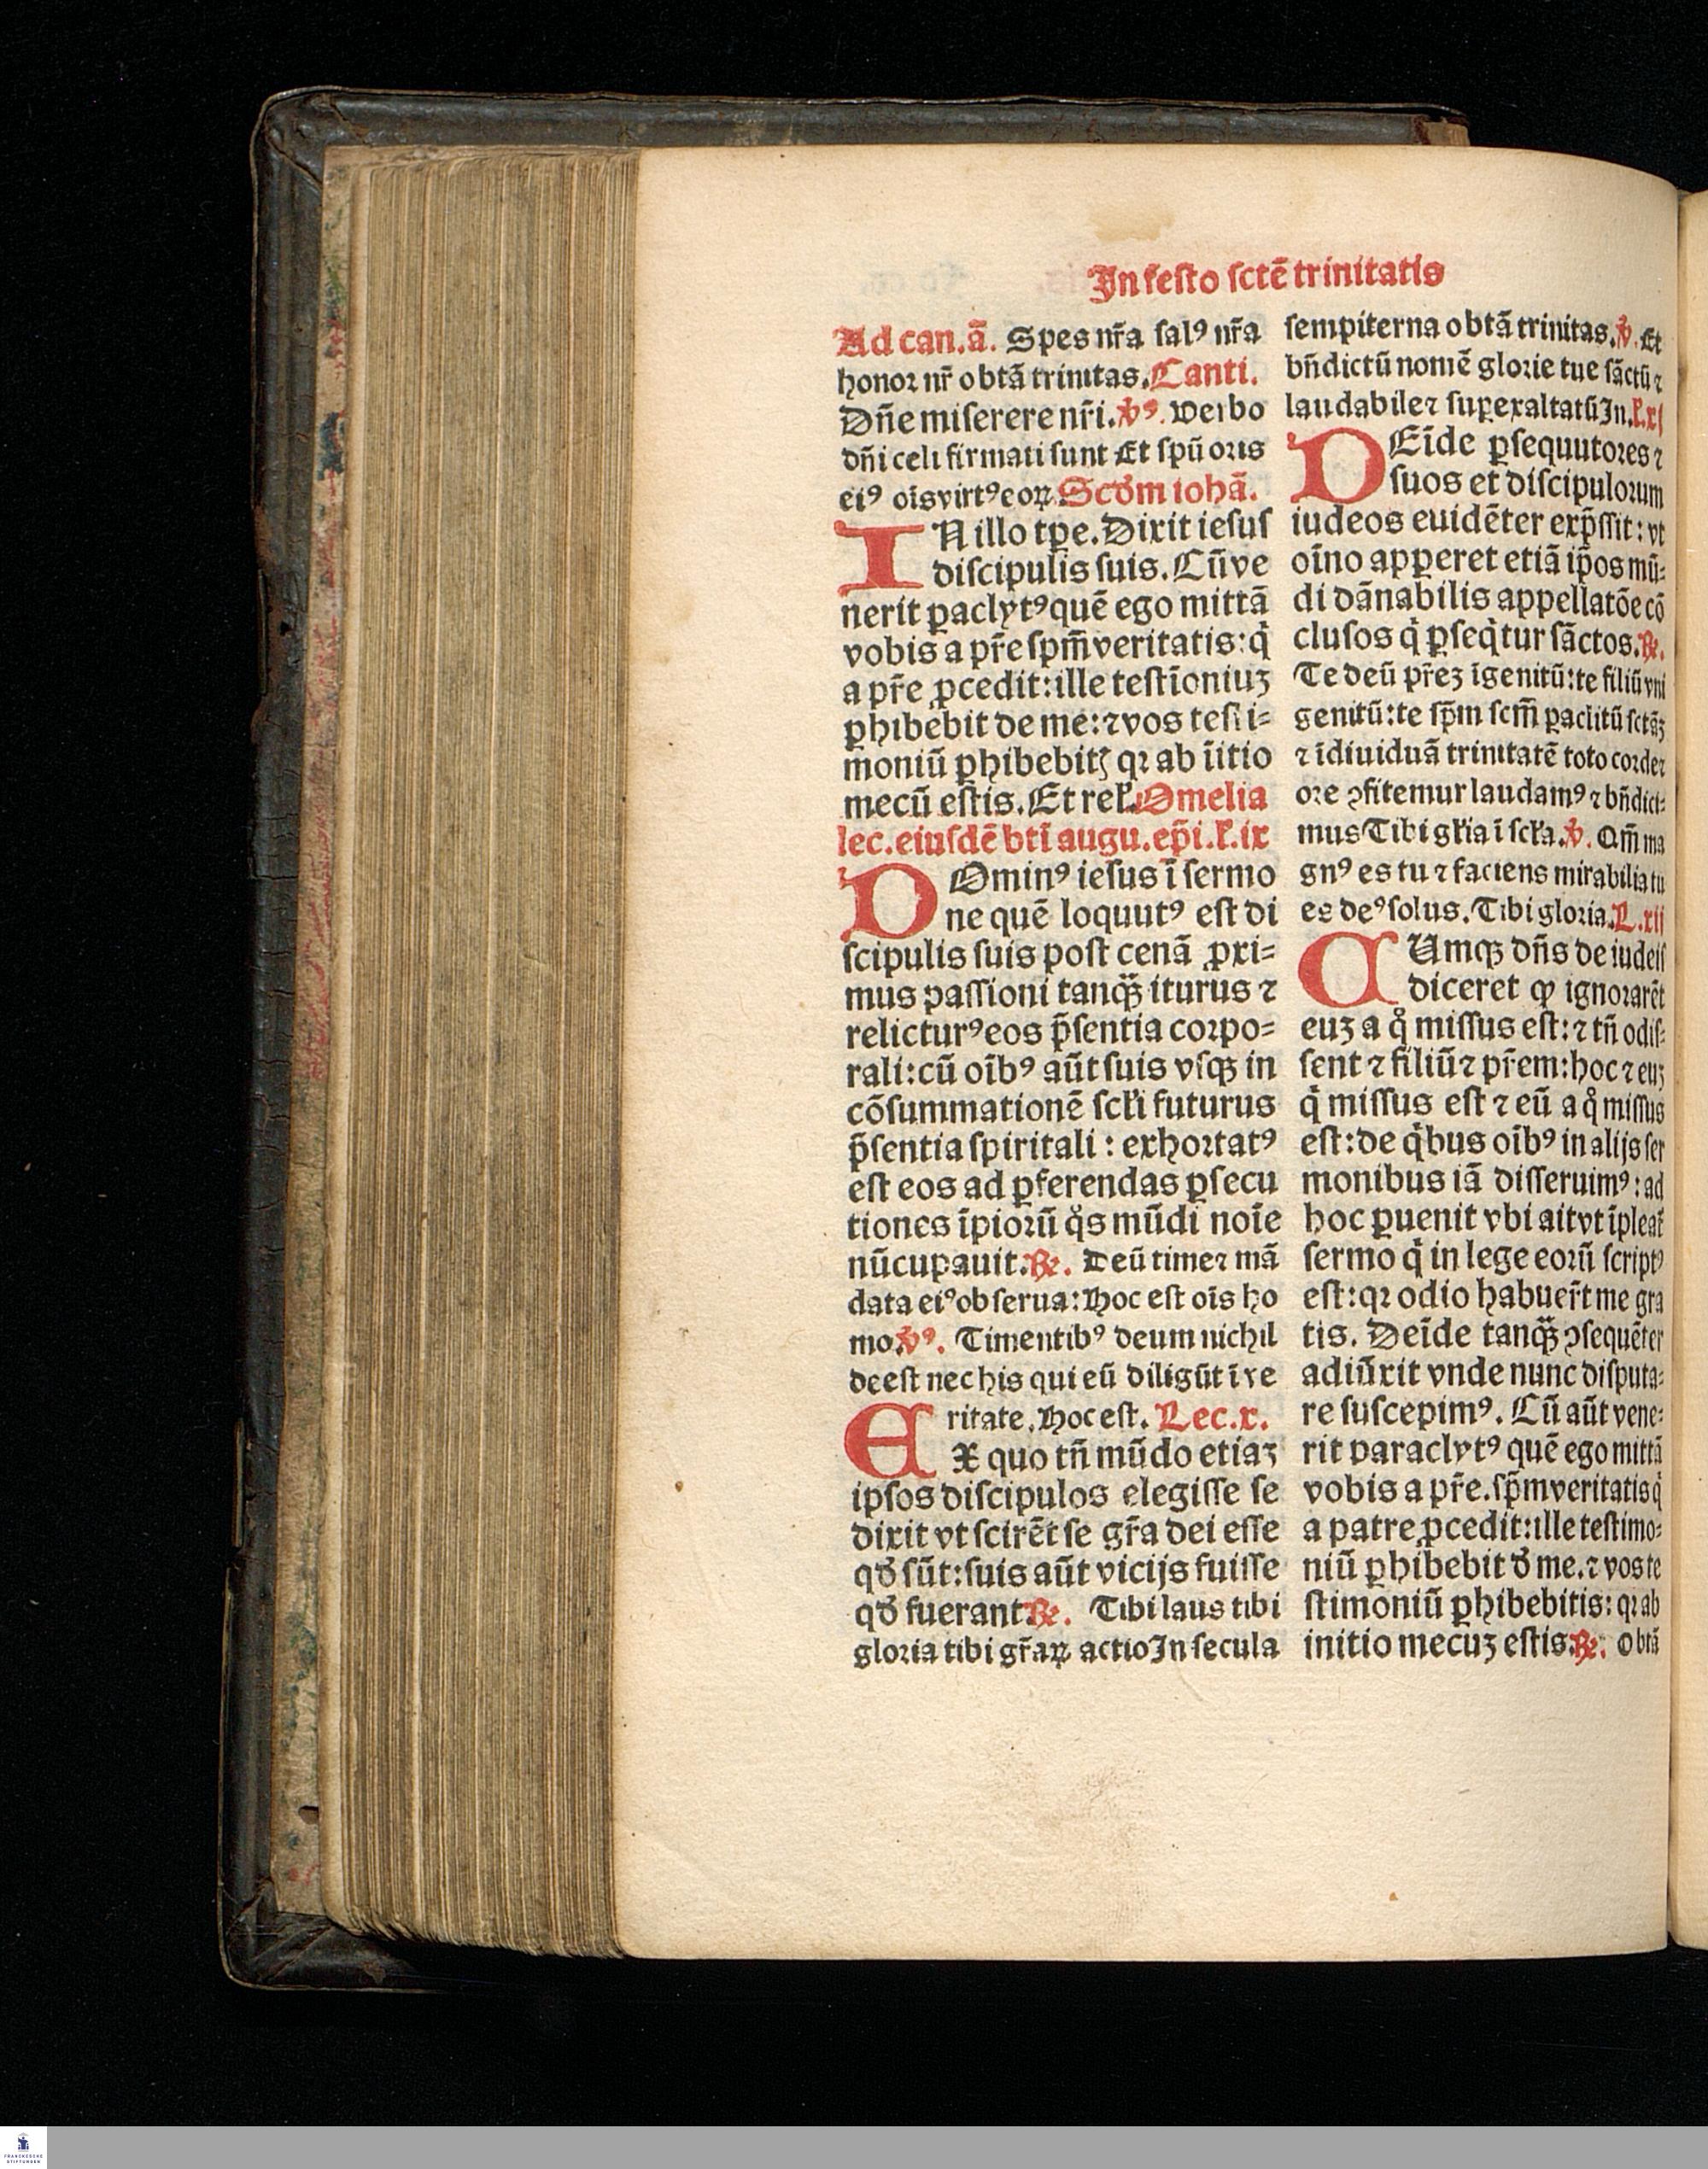 In festo sctē trinitatis
Ad can.ā. Spes nr̄a salꝰ nr̄a
honor nr̄ o btā trinitas. Canti.
Dn̄e miserere nr̄i. v̾ꝰ. Verbo
dn̄i celi firmati sunt Et spū oris
eiꝰ oīs virtꝰ eoꝝ Scd̾m iohā.
IN illo tꝑe. Dixit iesus
discipulis suis. Cū ve
nerit ꝑaclytꝰ quē ego mittā
vobis a pr̄e spm̄ veritatis: q̇
a pr̄e ꝓcedit: ille testīoniuꝫ
ꝑhibebit de me: ⁊ vos testi⸗
moniū ꝑhibebitꝭ qꝛ ab īitio
mecū estis. Et rel̾. Omelia
lec. eiusdē btī augu. ep̄i. l̾. ix
DOminꝰ iesus ī sermo
ne quē loquutꝰ est di
scipulis suis post cenā ꝓxi⸗
mus passioni tanqꝫ̄ iturus ⁊
relicturꝰ eos p̄sentia corpo⸗
rali: cū oībꝰ aūt suis vsqꝫ in
cōsummationē scl̾i futurus
p̄sentia spiritali: exhortatꝰ
est eos ad ꝑferendas ꝑsecu
tiones īpiorū qͦs mūdi noīe
nūcupauit. ℞. Deū time ⁊ mā
data eiꝰ obserua: Hoc est oīs ho
mo. v̾ꝰ. Timentibꝰ deum nichil
deest nec his qui eū diligūt ī ve
ritate. Hoc est. Lec. x.
EX quo tn̄ mūdo etiaꝫ
ipsos discipulos elegisse se
dixit vt scirēt se gr̄a dei esse
qd̾ sūt: suis aūt vicijs fuisse
qd̾ fuerant. ℞. Tibi laus tibi
gloria tibi gr̄aꝝ actio In secula
sempiterna o btā trinitas. v̾. Et
bn̄dictū nomē glorie tue sāctū ⁊
laudabile ⁊ suꝑexaltatū In. l̾. xi
DEīde ꝑsequutores ⁊
suos et discipulorum
iudeos euidēter exp̄ssit: vt
oīno apꝑeret etiā ip̄os mū⸗
di dānabilis appellatōe cō
clusos q̇ ꝑseq̇tur sāctos. ℞.
Te deū pr̄eꝫ īgenitū: te filiū vni
genitū: te sp̄m scm̄ ꝑaclitū sctāꝫ
⁊ īdiuiduā trinitatē toto corde ⁊
ore ꝯfitemur laudamꝰ ⁊ bn̄dici⸗
mus Tibi gl̾ia ī scl̾a. v̾. Qm̄ ma
gnꝰ es tu ⁊ faciens mirabilia tu
es deꝰ solus. Tibi gloria. L. xii
CUmqꝫ dn̄s de iudeis
diceret ꝙ ignorarēt
euꝫ a qͦ missus est: ⁊ tn̄ odis⸗
sent ⁊ filiū ⁊ pr̄em: hoc ⁊ euꝫ
q̇ missus est ⁊ eū a qͦ missus
est: de q̇bus oībꝰ in alijs ser
monibus iā disseruimꝰ: ad
hoc ꝑuenit vbi ait vt īpleat̄
sermo q̇ in lege eorū scriptꝰ
est: qꝛ odio habuer̄t me gra
tis. Deīde tanqꝫ̄ ꝯsequēter
adiūxit vnde nunc disputa⸗
re suscepimꝰ. Cū aūt vene⸗
rit paraclytꝰ quē ego mittā
vobis a pr̄e. sp̄m veritatis q̇
a patre ꝓcedit: ille testimo⸗
niū ꝑhibebit d̾ me. ⁊ vos te
stimoniū ꝑhibebitis: qꝛ ab
initio mecuꝫ estis. ℞. O btā
FRANCKESCHE
STIFTUNGEN